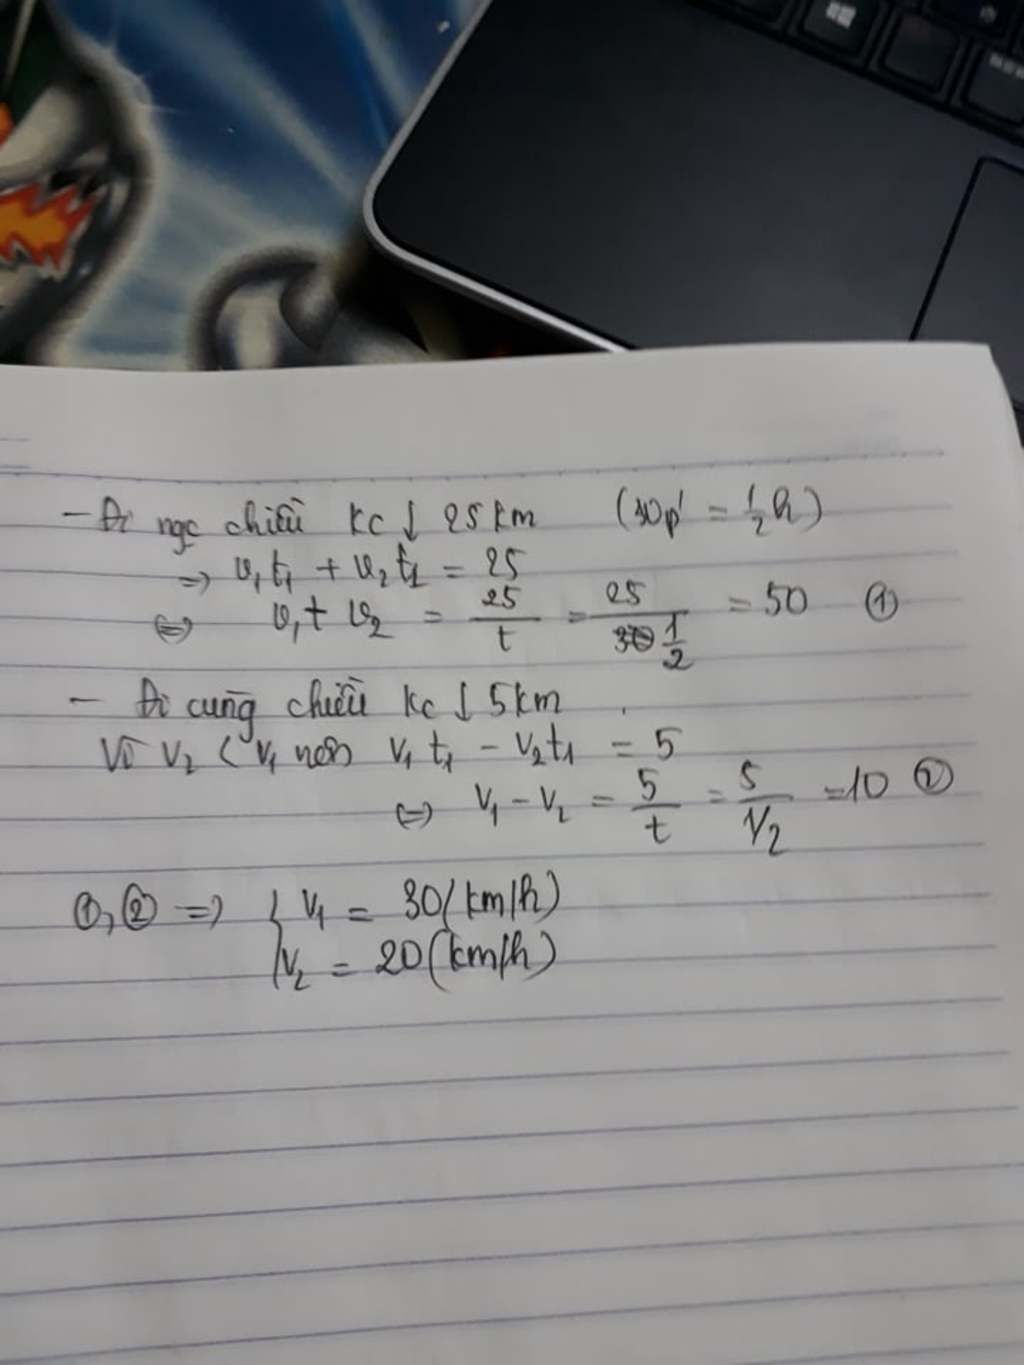 - Đi ngc chiều kc ↓ 25km (30p' = 1/2 h)
=> v₁t₁ + v₂t₁ = 25
<=> v₁ + v₂ = 25/t = 25/(1/2) = 50 ①
- Đi cùng chiều kc ↓ 5km
Vì v₂ < v₁ nên v₁t₁ - v₂t₁ = 5
<=> v₁ - v₂ = 5/t = 5/(1/2) = 10 ②
①, ② => { v₁ = 30 (km/h)
v₂ = 20 (km/h)